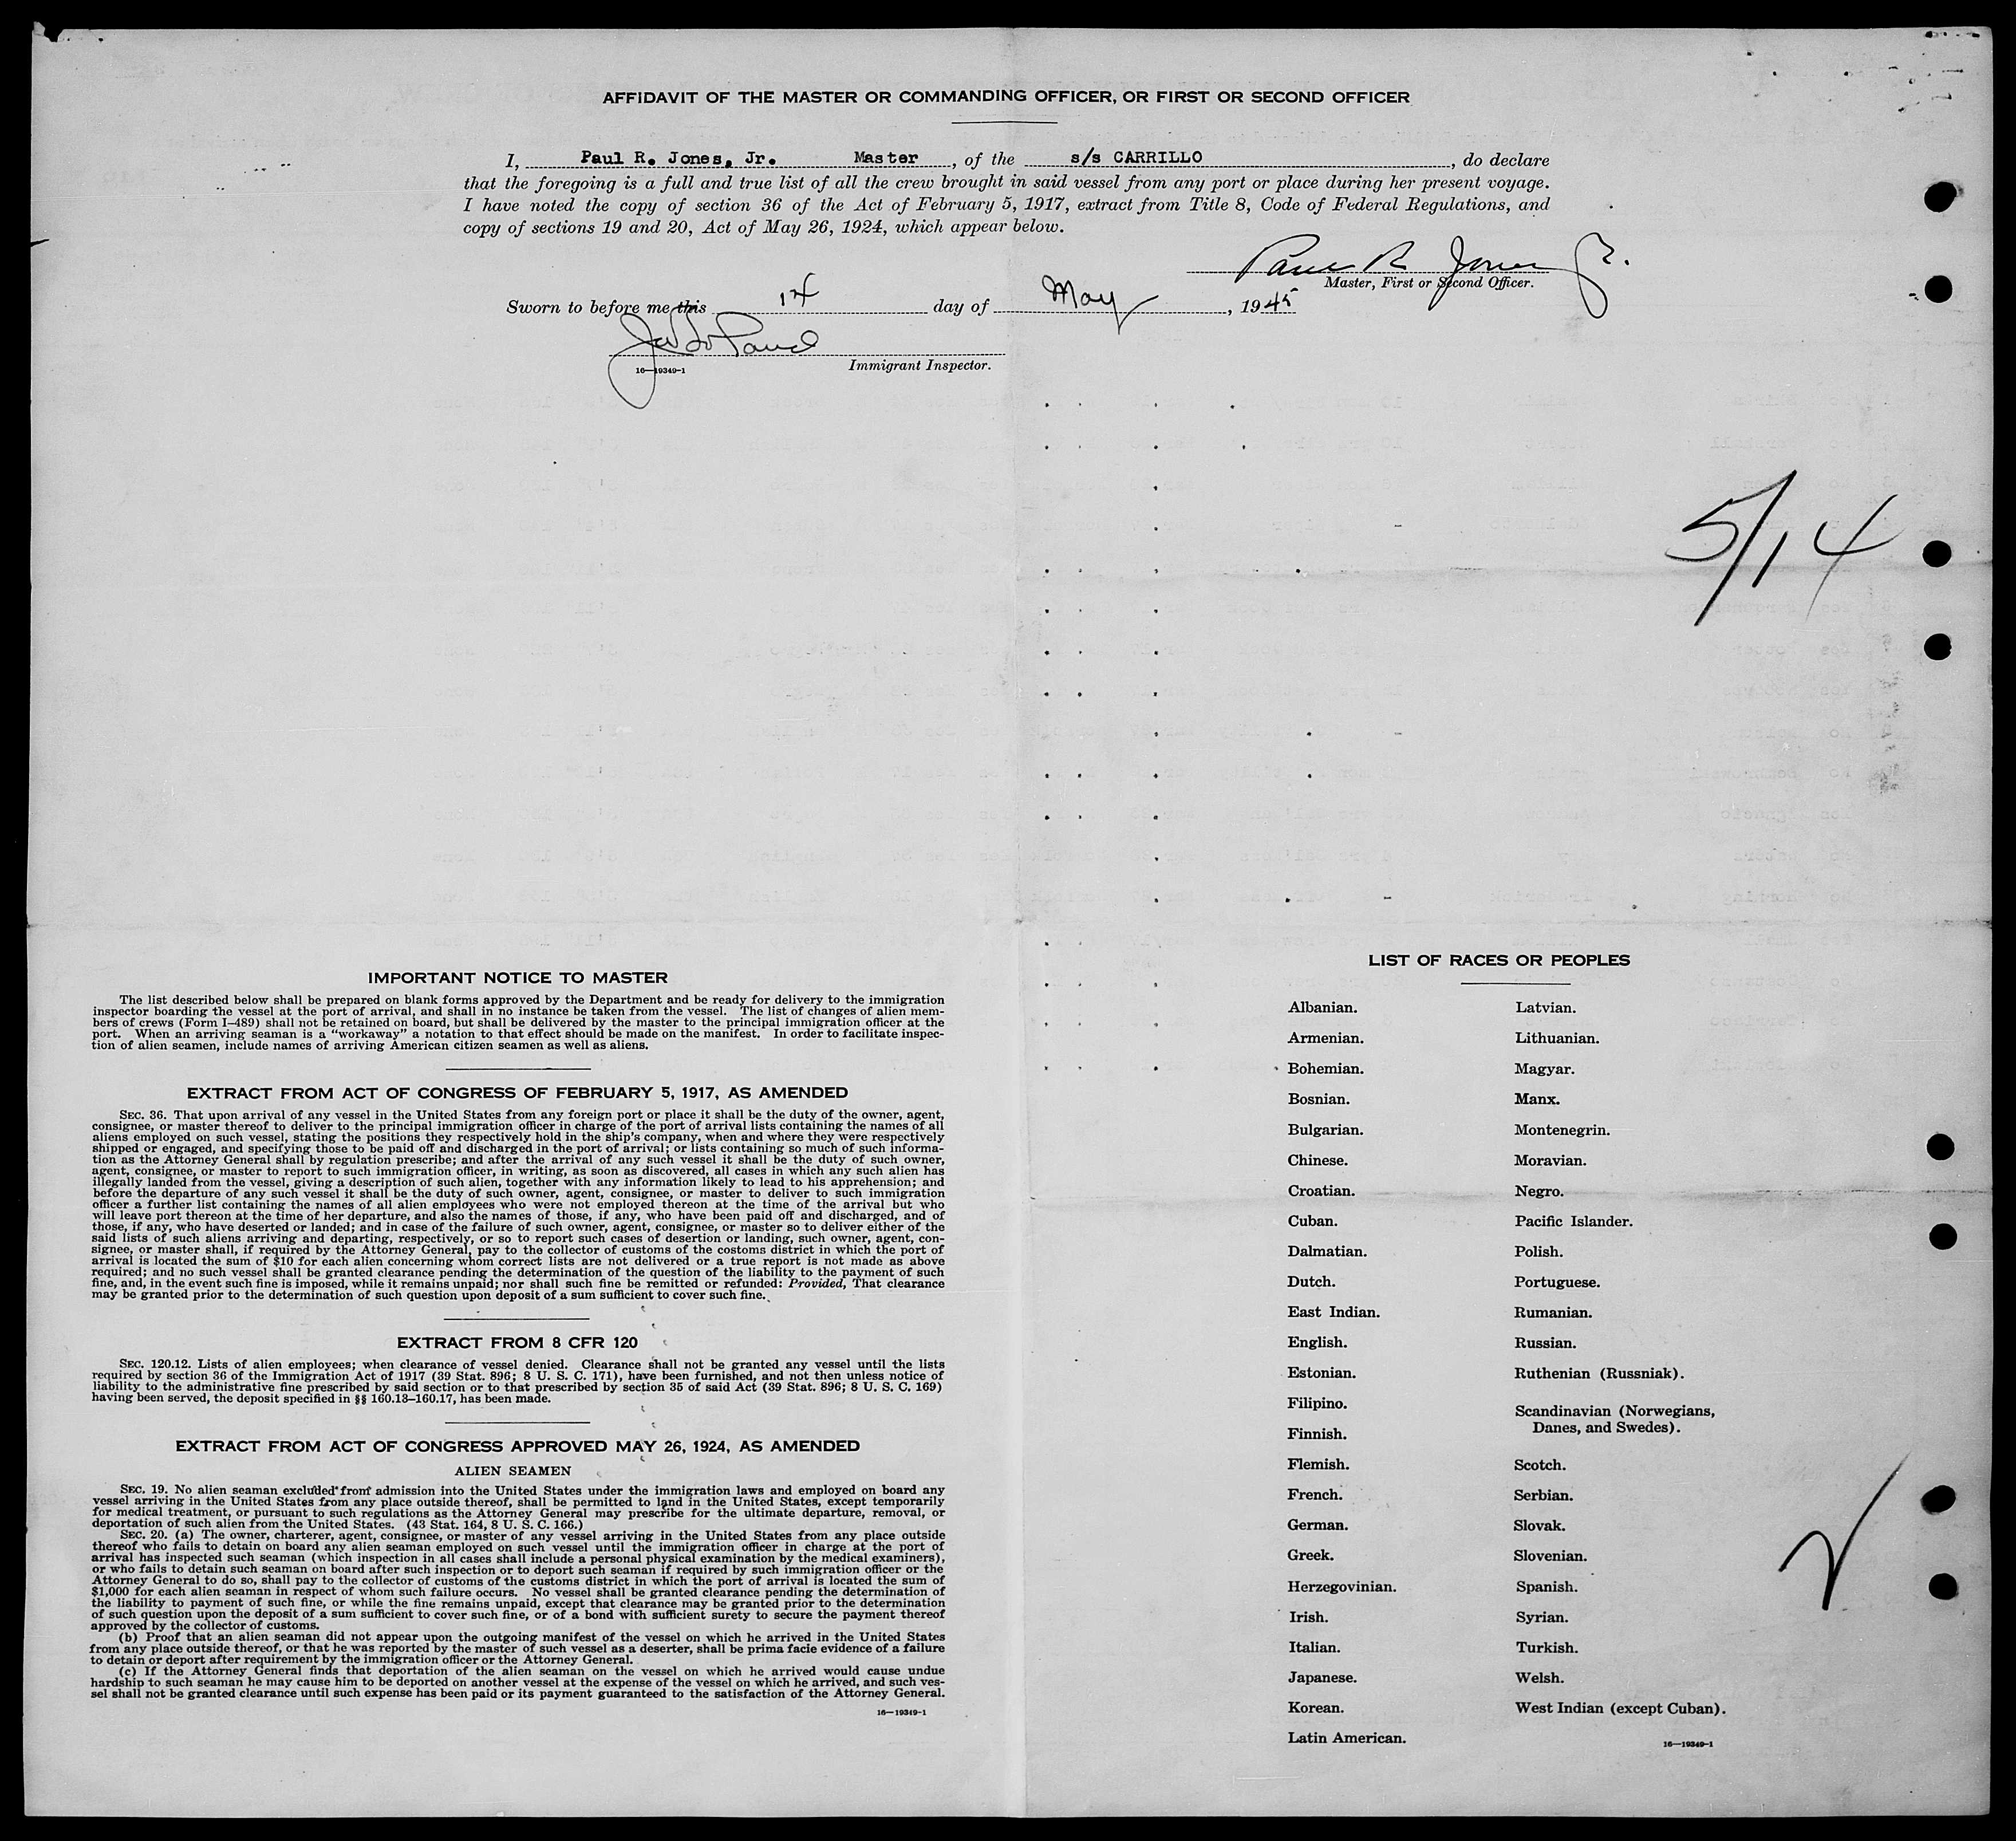 AFFIDAVIT OF THE MASTER OR COMMANDING OFFICER, OR FIRST OR SECOND OFFICER
I, Paul R. Jones, Jr. Master, of the s/s CARRILLO, do declare
that the foregoing is a full and true list of all the crew brought in said vessel from any port or place during her present voyage.
I have noted the copy of section 36 of the Act of February 5, 1917, extract from Title 8, Code of Federal Regulations, and
copy of sections 19 and 20, Act of May 26, 1924, which appear below.
Paul R Jones Jr.
Master, First or Second Officer.
Sworn to before me this 14 day of May, 1945
Immigrant Inspector.
16—19349-1
5/14
IMPORTANT NOTICE TO MASTER
The list described below shall be prepared on blank forms approved by the Department and be ready for delivery to the immigration
inspector boarding the vessel at the port of arrival, and shall in no instance be taken from the vessel. The list of changes of alien mem-
bers of crews (Form I-489) shall not be retained on board, but shall be delivered by the master to the principal immigration officer at the
port. When an arriving seaman is a "workaway" a notation to that effect should be made on the manifest. In order to facilitate inspec-
tion of alien seamen, include names of arriving American citizen seamen as well as aliens.
EXTRACT FROM ACT OF CONGRESS OF FEBRUARY 5, 1917, AS AMENDED
SEC. 36. That upon arrival of any vessel in the United States from any foreign port or place it shall be the duty of the owner, agent,
consignee, or master thereof to deliver to the principal immigration officer in charge of the port of arrival lists containing the names of all
aliens employed on such vessel, stating the positions they respectively hold in the ship's company, when and where they were respectively
shipped or engaged, and specifying those to be paid off and discharged in the port of arrival; or lists containing so much of such informa-
tion as the Attorney General shall by regulation prescribe; and after the arrival of any such vessel it shall be the duty of such owner,
agent, consignee, or master to report to such immigration officer, in writing, as soon as discovered, all cases in which any such alien has
illegally landed from the vessel, giving a description of such alien, together with any information likely to lead to his apprehension; and
before the departure of any such vessel it shall be the duty of such owner, agent, consignee, or master to deliver to such immigration
officer a further list containing the names of all alien employees who were not employed thereon at the time of the arrival but who
will leave port thereon at the time of her departure, and also the names of those, if any, who have been paid off and discharged, and of
those, if any, who have deserted or landed; and in case of the failure of such owner, agent, consignee, or master so to deliver either of the
said lists of such aliens arriving and departing, respectively, or so to report such cases of desertion or landing, such owner, agent, con-
signee, or master shall, if required by the Attorney General, pay to the collector of customs of the costoms district in which the port of
arrival is located the sum of $10 for each alien concerning whom correct lists are not delivered or a true report is not made as above
required; and no such vessel shall be granted clearance pending the determination of the question of the liability to the payment of such
fine, and, in the event such fine is imposed, while it remains unpaid; nor shall such fine be remitted or refunded: Provided, That clearance
may be granted prior to the determination of such question upon deposit of a sum sufficient to cover such fine.
EXTRACT FROM 8 CFR 120
SEC. 120.12. Lists of alien employees; when clearance of vessel denied. Clearance shall not be granted any vessel until the lists
required by section 36 of the Immigration Act of 1917 (39 Stat. 896; 8 U. S. C. 171), have been furnished, and not then unless notice of
liability to the administrative fine prescribed by said section or to that prescribed by section 35 of said Act (39 Stat. 896; 8 U. S. C. 169)
having been served, the deposit specified in §§ 160.13–160.17, has been made.
EXTRACT FROM ACT OF CONGRESS APPROVED MAY 26, 1924, AS AMENDED
ALIEN SEAMEN
SEC. 19. No alien seaman excluded from admission into the United States under the immigration laws and employed on board any
vessel arriving in the United States from any place outside thereof, shall be permitted to land in the United States, except temporarily
for medical treatment, or pursuant to such regulations as the Attorney General may prescribe for the ultimate departure, removal, or
deportation of such alien from the United States. (43 Stat. 164, 8 U. S. C. 166.)
SEC. 20. (a) The owner, charterer, agent, consignee, or master of any vessel arriving in the United States from any place outside
thereof who fails to detain on board any alien seaman employed on such vessel until the immigration officer in charge at the port of
arrival has inspected such seaman (which inspection in all cases shall include a personal physical examination by the medical examiners),
or who fails to detain such seaman on board after such inspection or to deport such seaman if required by such immigration officer or the
Attorney General to do so, shall pay to the collector of customs of the customs district in which the port of arrival is located the sum of
$1,000 for each alien seaman in respect of whom such failure occurs. No vessel shall be granted clearance pending the determination of
the liability to payment of such fine, or while the fine remains unpaid, except that clearance may be granted prior to the determination
of such question upon the deposit of a sum sufficient to cover such fine, or of a bond with sufficient surety to secure the payment thereof
approved by the collector of customs.
(b) Proof that an alien seaman did not appear upon the outgoing manifest of the vessel on which he arrived in the United States
from any place outside thereof, or that he was reported by the master of such vessel as a deserter, shall be prima facie evidence of a failure
to detain or deport after requirement by the immigration officer or the Attorney General.
(c) If the Attorney General finds that deportation of the alien seaman on the vessel on which he arrived would cause undue
hardship to such seaman he may cause him to be deported on another vessel at the expense of the vessel on which he arrived, and such ves-
sel shall not be granted clearance until such expense has been paid or its payment guaranteed to the satisfaction of the Attorney General.
16—19349-1
LIST OF RACES OR PEOPLES
Albanian.
Armenian.
Bohemian.
Bosnian.
Bulgarian.
Chinese.
Croatian.
Cuban.
Dalmatian.
Dutch.
East Indian.
English.
Estonian.
Filipino.
Finnish.
Flemish.
French.
German.
Greek.
Herzegovinian.
Irish.
Italian.
Japanese.
Korean.
Latin American.
Latvian.
Lithuanian.
Magyar.
Manx.
Montenegrin.
Moravian.
Negro.
Pacific Islander.
Polish.
Portuguese.
Rumanian.
Russian.
Ruthenian (Russniak).
Scandinavian (Norwegians,
Danes, and Swedes).
Scotch.
Serbian.
Slovak.
Slovenian.
Spanish.
Syrian.
Turkish.
Welsh.
West Indian (except Cuban).
16—19349-1